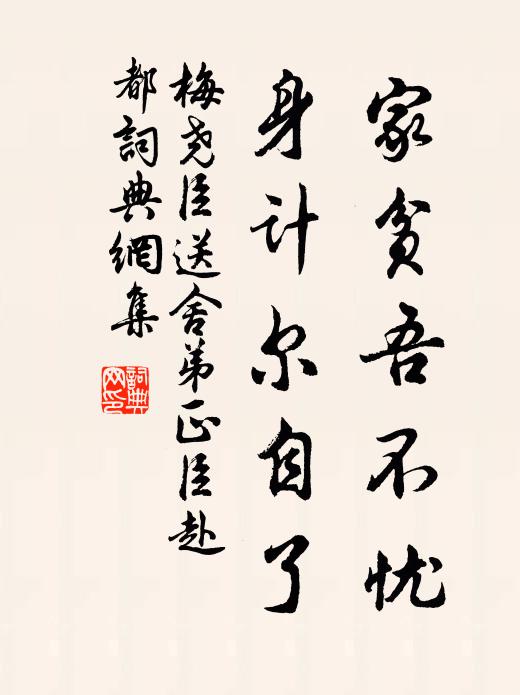 家贫吾不忧
身计尔自了
梅尧臣送舍弟正臣赴
都詞典網集
詞典网印